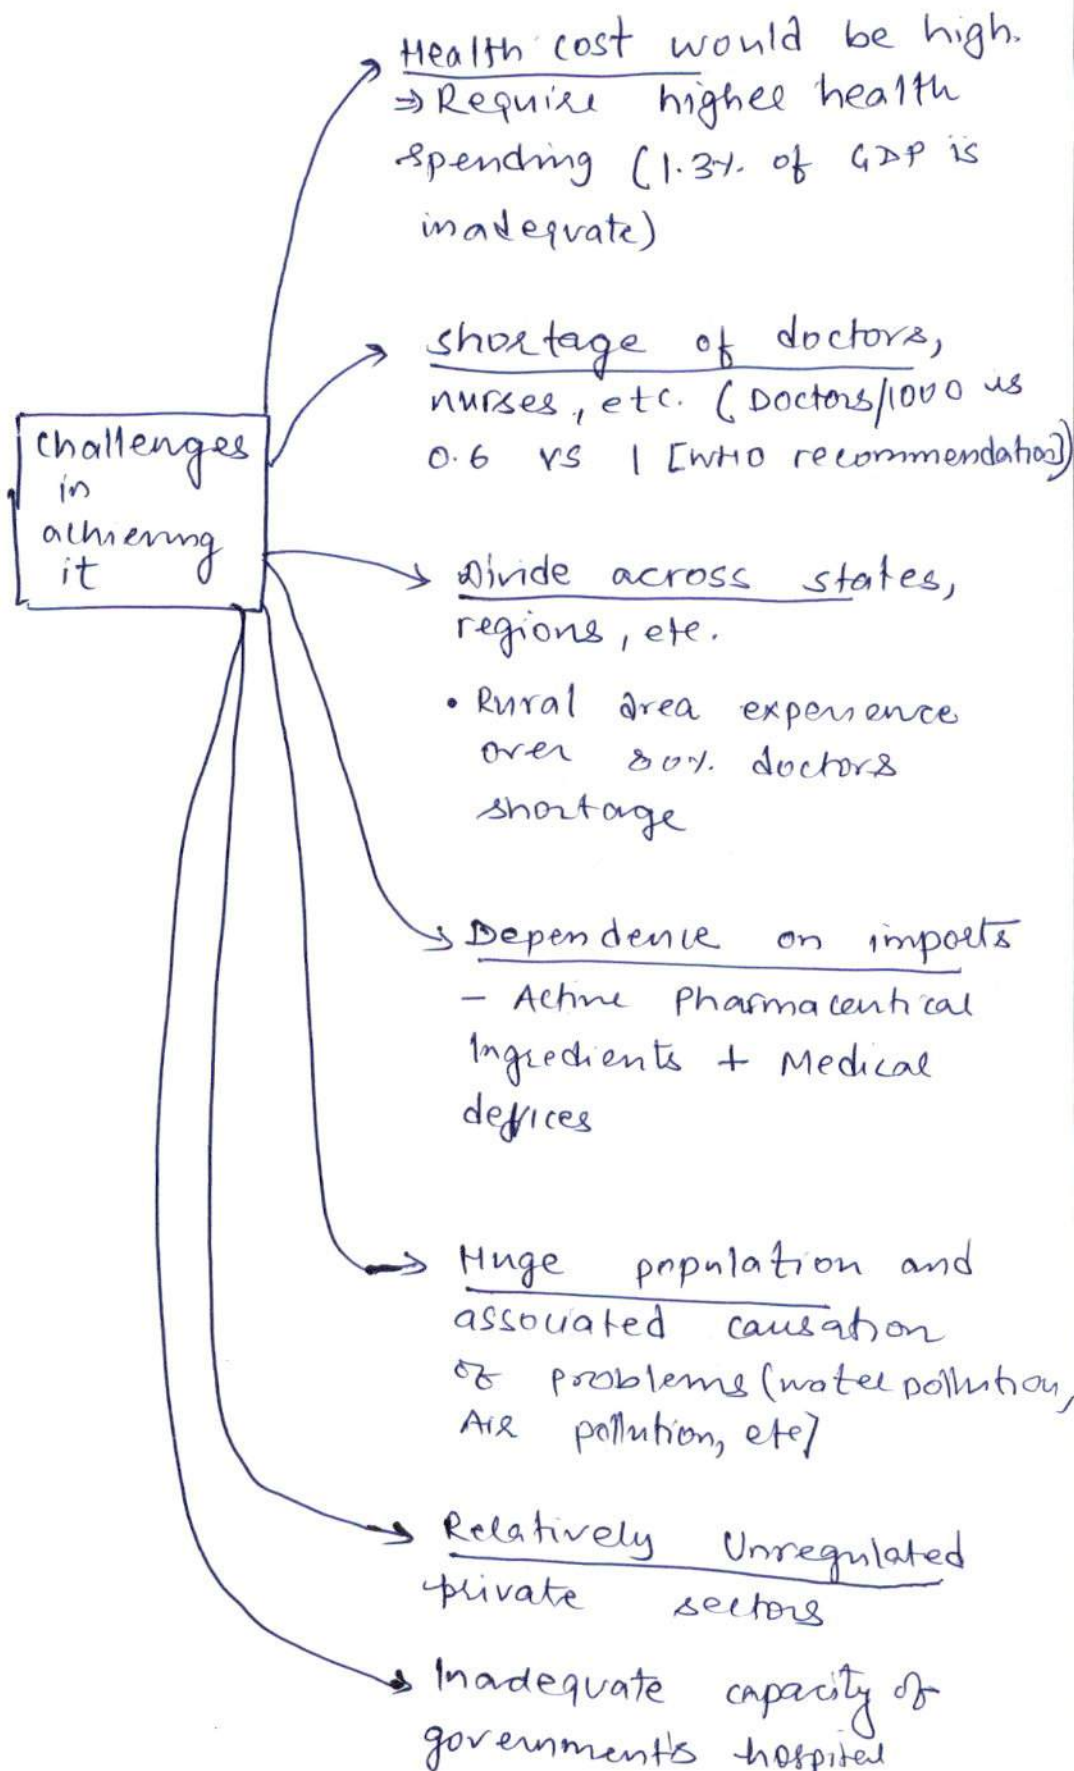 Health cost would be high.
⇒ Require higher health
spending (1.3% of GDP is
inadequate)
shortage of doctors,
nurses, etc. (Doctors/1000 is
0.6 vs 1 [WHO recommendation])
challenges
in
achieving
it
Divide across states,
regions, etc.
• Rural area experience
over 80% doctors
shortage
Dependence on imports
- Active Pharmaceutical
Ingredients + Medical
devices
Huge population and
associated causation
of problems (water pollution,
Air pollution, etc)
Relatively Unregulated
private sectors
Inadequate capacity of
government's hospital